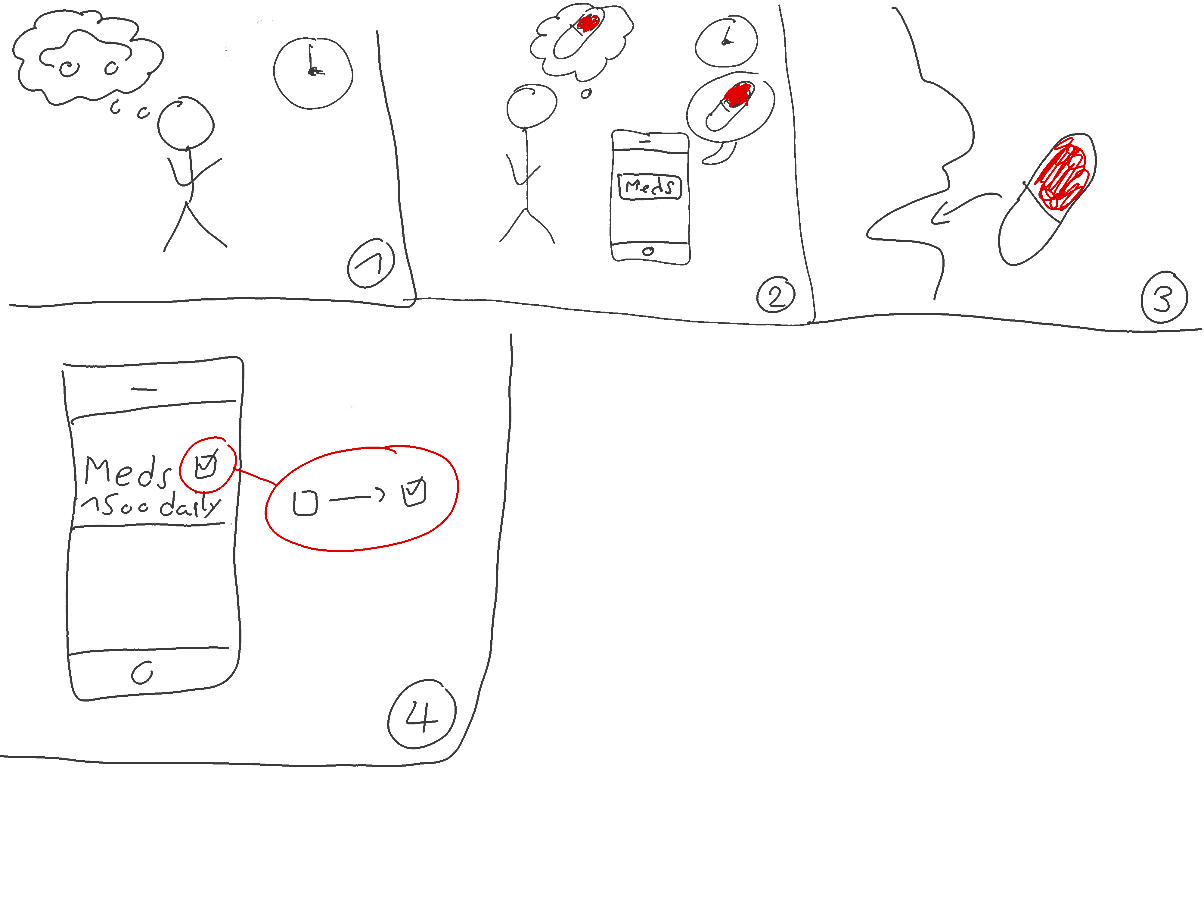 1
Meds
2
3
Meds
1500 daily
4